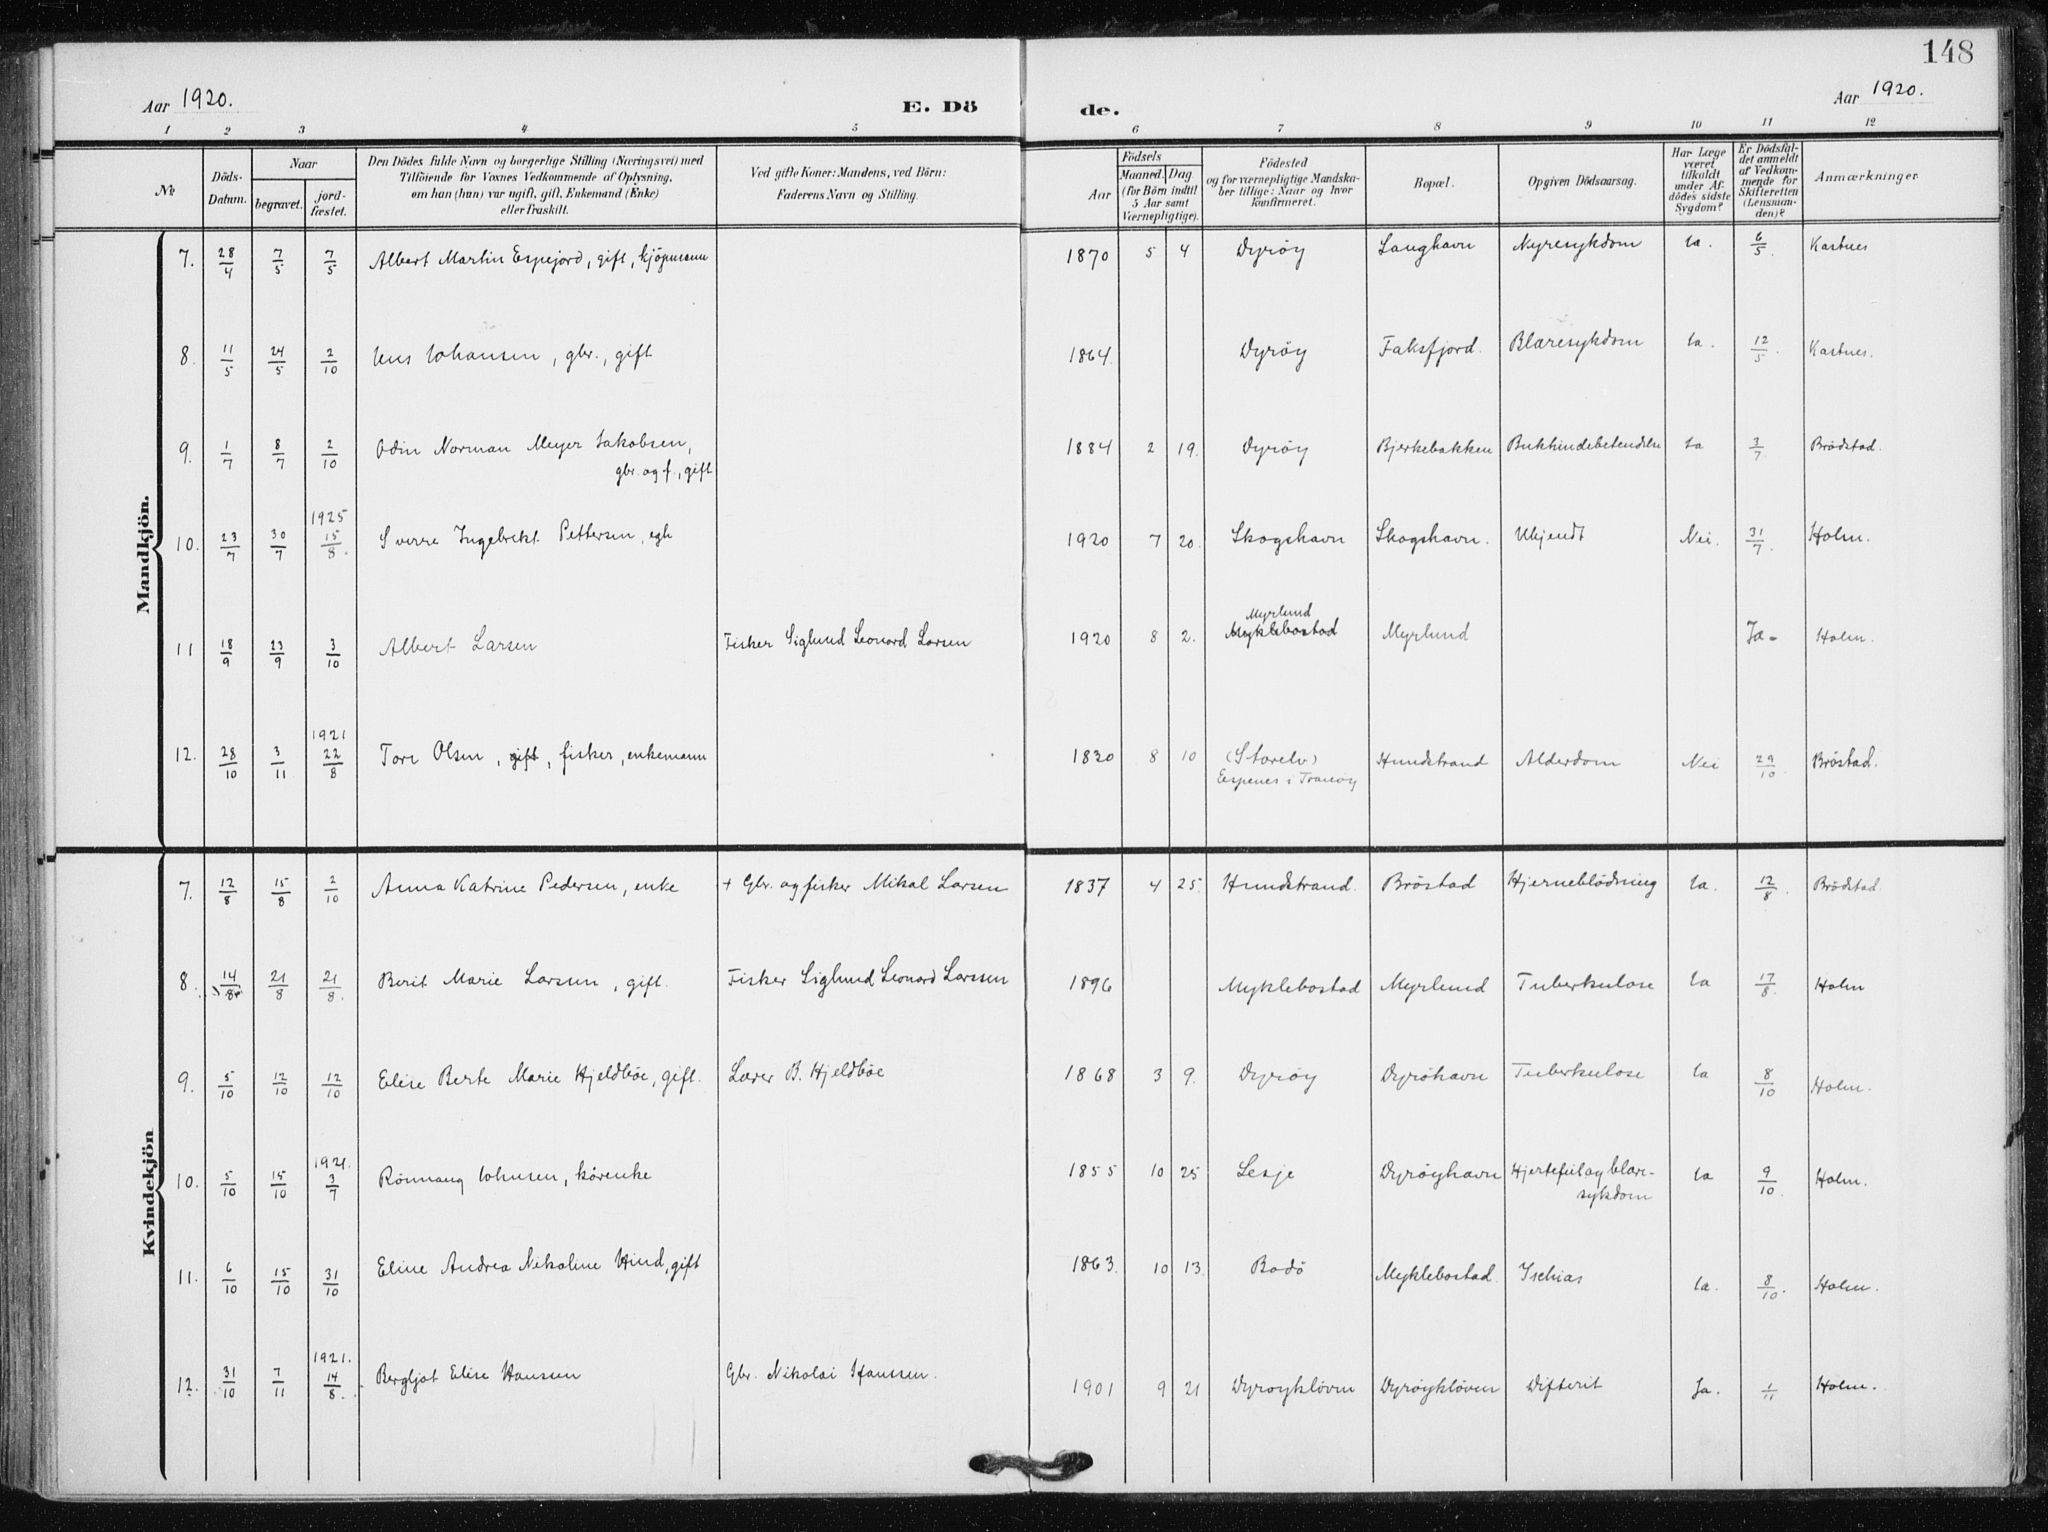 148
Aar 1920. E. Dö de. Aar 1920.
1 2 3 4 5 6 7 8 9 10 11 12
No Döds-Datum. Naar begravet. jordfæstet. Den Dödes fulde Navn og borgerlige Stilling (Næringsvei) med Tilföiende for Voxnes Vedkommende af Oplysning, om han (hun) var ugift, gift, Enkemand (Enke) eller fraskilt. Ved gifte Koner: Mandens, ved Börn: Faderens Navn og Stilling. Födsels Aar Maaned. Dag (for Börn indtil 5 Aar samt Værnepligtige). Födested og for værnepligtige Mandskaber tillige: Naar og hvor Konfirmeret. Bopæl. Opgiven Dödsaarsag. Har Læge været tilkaldt under Afdödes sidste Sygdom? Er Dödsfaldet anmeldt af Vedkommende for Skifteretten (Lensmanden)? Anmærkninger
Mandkjön.
7. 28/4 7/5 7/5 Albert Martin Espejord, gift, kjöpmann 1870 5 4 Dyröy Langhavn Nyresykdom Ja. 6/5. Kastnes
8. 11/5 24/5 2/10 Jens Johansen, gbr., gift 1864. Dyröy Faksfjord. Blæresykdom Ja. 12/5. Kastnes.
9. 1/7 8/7 2/10 Odin Norman Meyer Jakobsen, 1884 2 19. Dyröy Bjerkebakken Bukhindebetendelse Ja 3/7 Brödstad.
gbr. og f., gift
1925
10. 23/7 30/7 15/8. Sverre Ingebrikt Pettersen, egh 1920 7 20. Skogshavn Skogshavn. Ukjendt Nei. 31/7. Holm.
Myrlund
11 18/9 23/9 3/10 Albert Larsen Fisker Siglund Leonard Larsen 1920 8 2. Myklebostad Myrlund Ja - Holm.
1921
12. 28/10 3/11 22/8 Tore Olsen, gift, fisker, enkemann 1830 8 10 (Storelv) Hundstrand Alderdom Nei 29/10. Bröstad.
Espenes i Tranöy
Kvindekjön
7. 12/8 15/8 2/10 Anna Katrine Pedersen, enke + Gbr. og fisker Mikal Larsen 1837 4 25. Hundstrand. Bröstad Hjerneblödning Ja. 12/8. Brödstad.
8. 14/8 21/8 21/8. Berit Marie Larsen, gift. Fisker Siglund Leonard Larssen 1896 Myklebostad Myrlund Tuberkulose Ja 17/8. Holm
9. 5/10 12/10 12/10 Elise Berte Marie Hjeldböe, gift. Lærer B. Hjeldböe 1868 3 9. Dyröy Dyröhavn Tuberkulose Ja 8/10 Holm.
1921.
10. 5/10 15/10 3/7 Rönnaug Johnsen, kårenke 1855 10 25 Lesje Dyröyhavn Hjertefeil og blære- Ja 9/10. Holm.
sykdom
11. 6/10 15/10 31/10 Eline Andrea Nikoline Hind, gift 1863. 10 13. Bodö Myklebostad. Ischias Ja. 8/10. Holm.
1921.
12. 31/10 7/11 14/8. Bergljot Elise Hanssen Gbr. Nikolai Hanssen. 1901 9 21 Dyröyklöven Dyröyklöven Difterit Ja. 1/11 Holm.